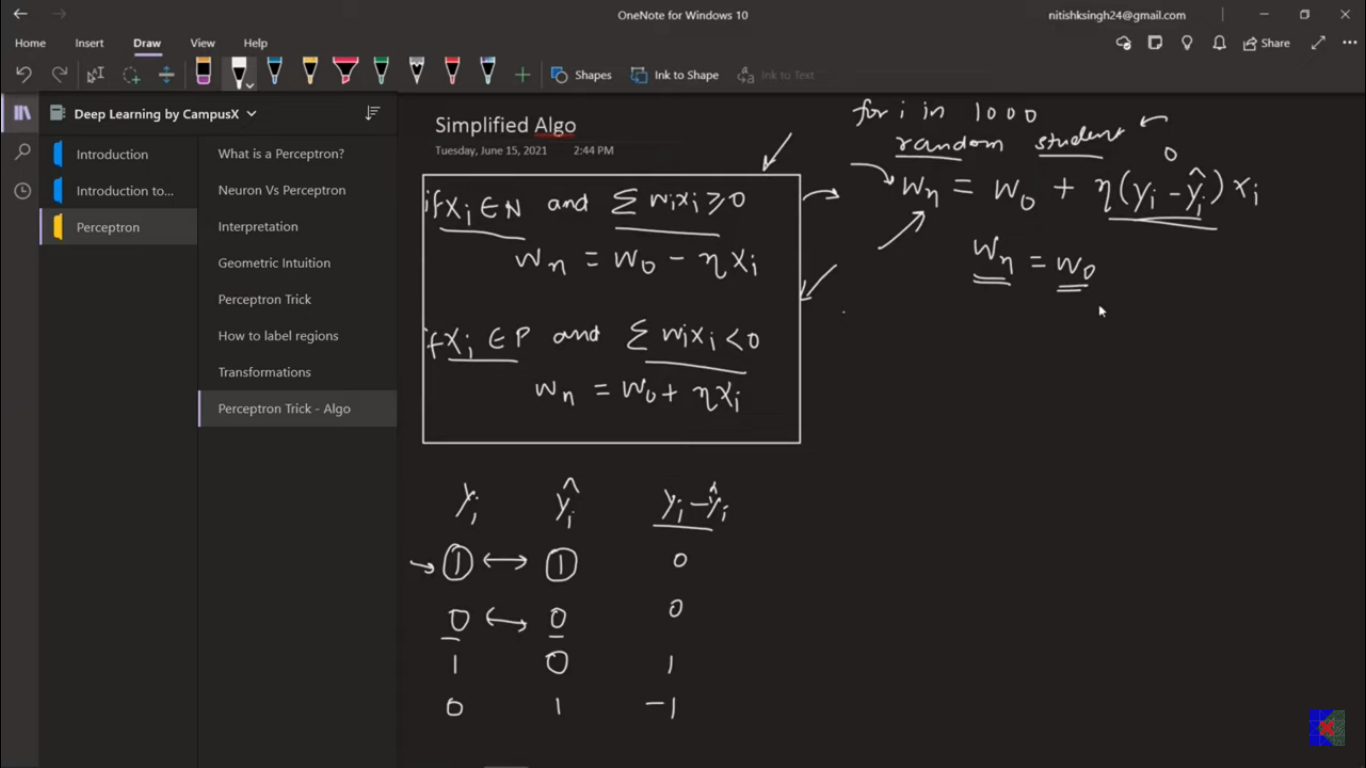 OneNote for Windows 10
nitishksingh24@gmail.com
Home Insert Draw View Help
Share
Shapes Ink to Shape Ink to Text
Deep Learning by CampusX
Introduction
Introduction to...
Perceptron
What is a Perceptron?
Neuron Vs Perceptron
Interpretation
Geometric Intuition
Perceptron Trick
How to label regions
Transformations
Perceptron Trick - Algo
Simplified Algo
Tuesday, June 15, 2021 2:44 PM
if xᵢ ∈ N and Σ wᵢxᵢ ≥ 0
wₙ = w₀ - ηxᵢ
if xᵢ ∈ P and Σ wᵢxᵢ < 0
wₙ = w₀ + ηxᵢ
for i in 1000
random student
0
wₙ = w₀ + η(yᵢ - ŷᵢ)xᵢ
wₙ = w₀
yᵢ ŷᵢ yᵢ - ŷᵢ
1 1 0
0 0 0
1 0 1
0 1 -1